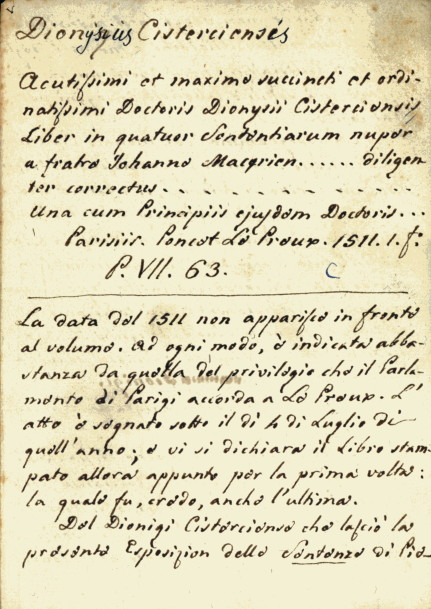 Dionysius Cisterciensis
Acutissimi et maxime succincti et ordi-
natissimi Doctoris Dionysii Cisterciensis
Liber in quatuor Sententiarum nuper
a fratre Johanne Macerien...... diligen
ter correctus . . . . . . . . .
Una cum Principiis ejusdem Doctoris...
Parisiis. Poncet Le Preux. 1511. 1. fo.
P. VII. 63. C
La data del 1511 non apparisce in fronte
al volume. Ad ogni modo, è indicata abba-
stanza da quella del privilegio che il Parla-
mento di Parigi accorda a Le Preux. L'
atto è segnato sotto il dì 4 di Luglio di
quell'anno; e vi si dichiara il Libro stam-
pato allora appunto per la prima volta:
la quale fu, credo, anche l'ultima.
Del Dionigi Cisterciense che lasciò la
presente Esposizion delle Sentenze di Pie-